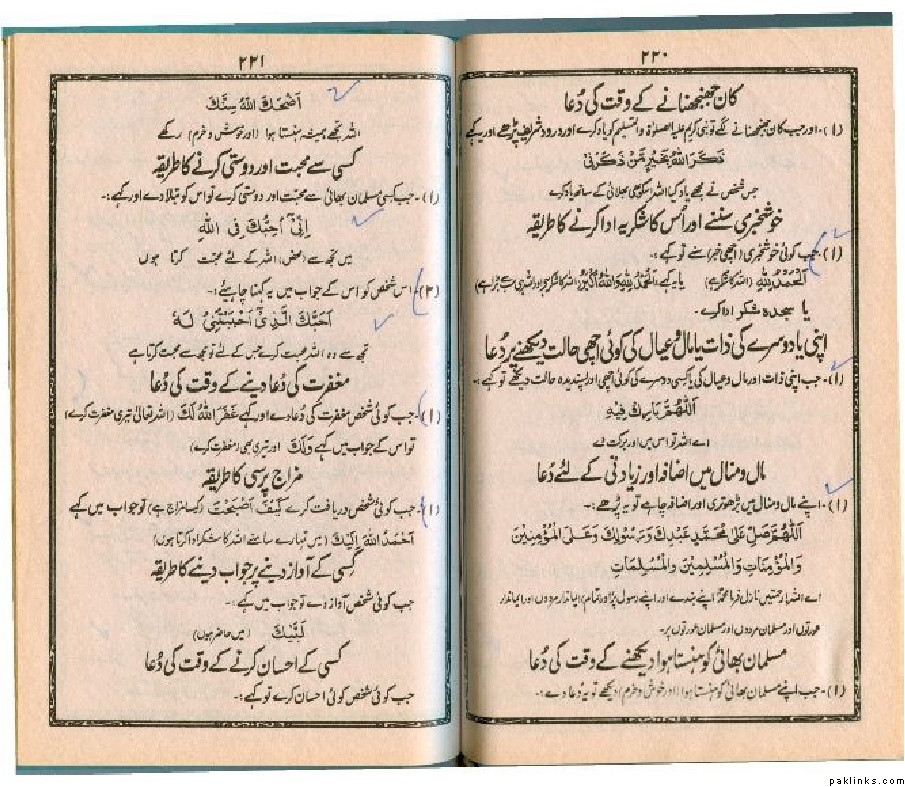 ۲۲۰
کان جھنجھنانے کے وقت کی دُعا
(۱)۔ اور جب کان جھنجھنانے لگے تو نبی کریم علیہ الصلوٰۃ والتسلیم کو یاد کرے اور درود شریف پڑھے اور یہ کہے
ذَكَرَ اللّٰهُ بِخَيْرٍ مَّنْ ذَكَرَنِیْ
جس شخص نے مجھے یاد کیا اللہ اس کو بھی بھلائی کے ساتھ یاد کرے
خوشخبری سننے اور اُس کا شکریہ ادا کرنے کا طریقہ
(۱)۔ جب کوئی خوشخبری (اچھی خبر) سنے تو کہے :۔
اَلْحَمْدُ لِلّٰهِ (اللہ کا شکر ہے) یا کہے اَلْحَمْدُ لِلّٰهِ وَاللّٰهُ اَكْبَرُ (اللہ کا شکر ہے اور اللہ ہی سب سے بڑا ہے)
یا سجدہ شکر ادا کرے۔
اپنی یا دوسرے کی ذات یا مال و عیال کی کوئی اچھی حالت دیکھنے پر دُعا
(۱)۔ جب اپنی ذات اور مال و عیال کی یا کسی دوسرے کی کوئی اچھی اور پسندیدہ حالت دیکھے تو کہے :۔
اَللّٰهُمَّ بَارِكْ فِيْهِ
اے اللہ تو اس میں اور برکت دے
مال و منال میں اضافہ اور زیادتی کے لئے دُعا
(۱)۔ اپنے مال و منال میں بڑھوتری اور اضافہ چاہے تو یہ پڑھے :۔
اَللّٰهُمَّ صَلِّ عَلٰی مُحَمَّدٍ عَبْدِكَ وَرَسُوْلِكَ وَعَلَی الْمُؤْمِنِيْنَ
وَالْمُؤْمِنَاتِ وَالْمُسْلِمِيْنَ وَالْمُسْلِمَاتِ
اے اللہ رحمتیں نازل فرما محمدؐ اپنے بندے اور اپنے رسول پر اور تمام ایماندار مردوں اور ایماندار
عورتوں اور مسلمان مردوں اور مسلمان عورتوں پر۔
مسلمان بھائی کو ہنستا ہوا دیکھنے کے وقت کی دُعا
(۱)۔ جب اپنے مسلمان بھائی کو ہنستا ہوا (اور خوش و خرم) دیکھے تو یہ دُعا دے :۔
۲۲۱
اَضْحَكَ اللّٰهُ سِنَّكَ
اللہ تجھے ہمیشہ ہنستا ہوا (اور خوش و خرم) رکھے
کسی سے محبت اور دوستی کرنے کا طریقہ
(۱)۔ جب کسی مسلمان بھائی سے محبت اور دوستی کرے تو اس کو بتلا دے اور کہے :۔
اِنِّیْٓ اُحِبُّكَ فِی اللّٰهِ
میں تجھ سے (محض) اللہ کے لئے محبت کرتا ہوں
(۲)۔ اس شخص کو اس کے جواب میں یہ کہنا چاہیئے :۔
اَحَبَّكَ الَّذِیْٓ اَحْبَبْتَنِیْ لَهٗ
تجھ سے وہ اللہ محبت کرے جس کے لئے تو مجھ سے محبت کرتا ہے
مغفرت کی دُعا دینے کے وقت کی دُعا
(۱)۔ جب کوئی شخص مغفرت کی دُعا دے اور کہے غَفَرَ اللّٰهُ لَكَ (اللہ تعالیٰ تیری مغفرت کرے)
تو اس کے جواب میں کہے وَلَكَ (اور تیری بھی مغفرت کرے)
مزاج پرسی کا طریقہ
(۱)۔ جب کوئی شخص دریافت کرے كَيْفَ اَصْبَحْتَ (کیسا مزاج ہے) تو جواب میں کہے
اَحْمَدُ اللّٰهَ اِلَيْكَ (میں تمہارے سامنے اللہ کا شکر ادا کرتا ہوں)
کسی کے آواز دینے پر جواب دینے کا طریقہ
جب کوئی شخص آواز دے تو جواب میں کہے :۔
لَبَّيْكَ (میں حاضر ہوں)
کسی کے احسان کرنے کے وقت کی دُعا
جب کوئی شخص کوئی احسان کرے تو کہے :۔
paklinks.com